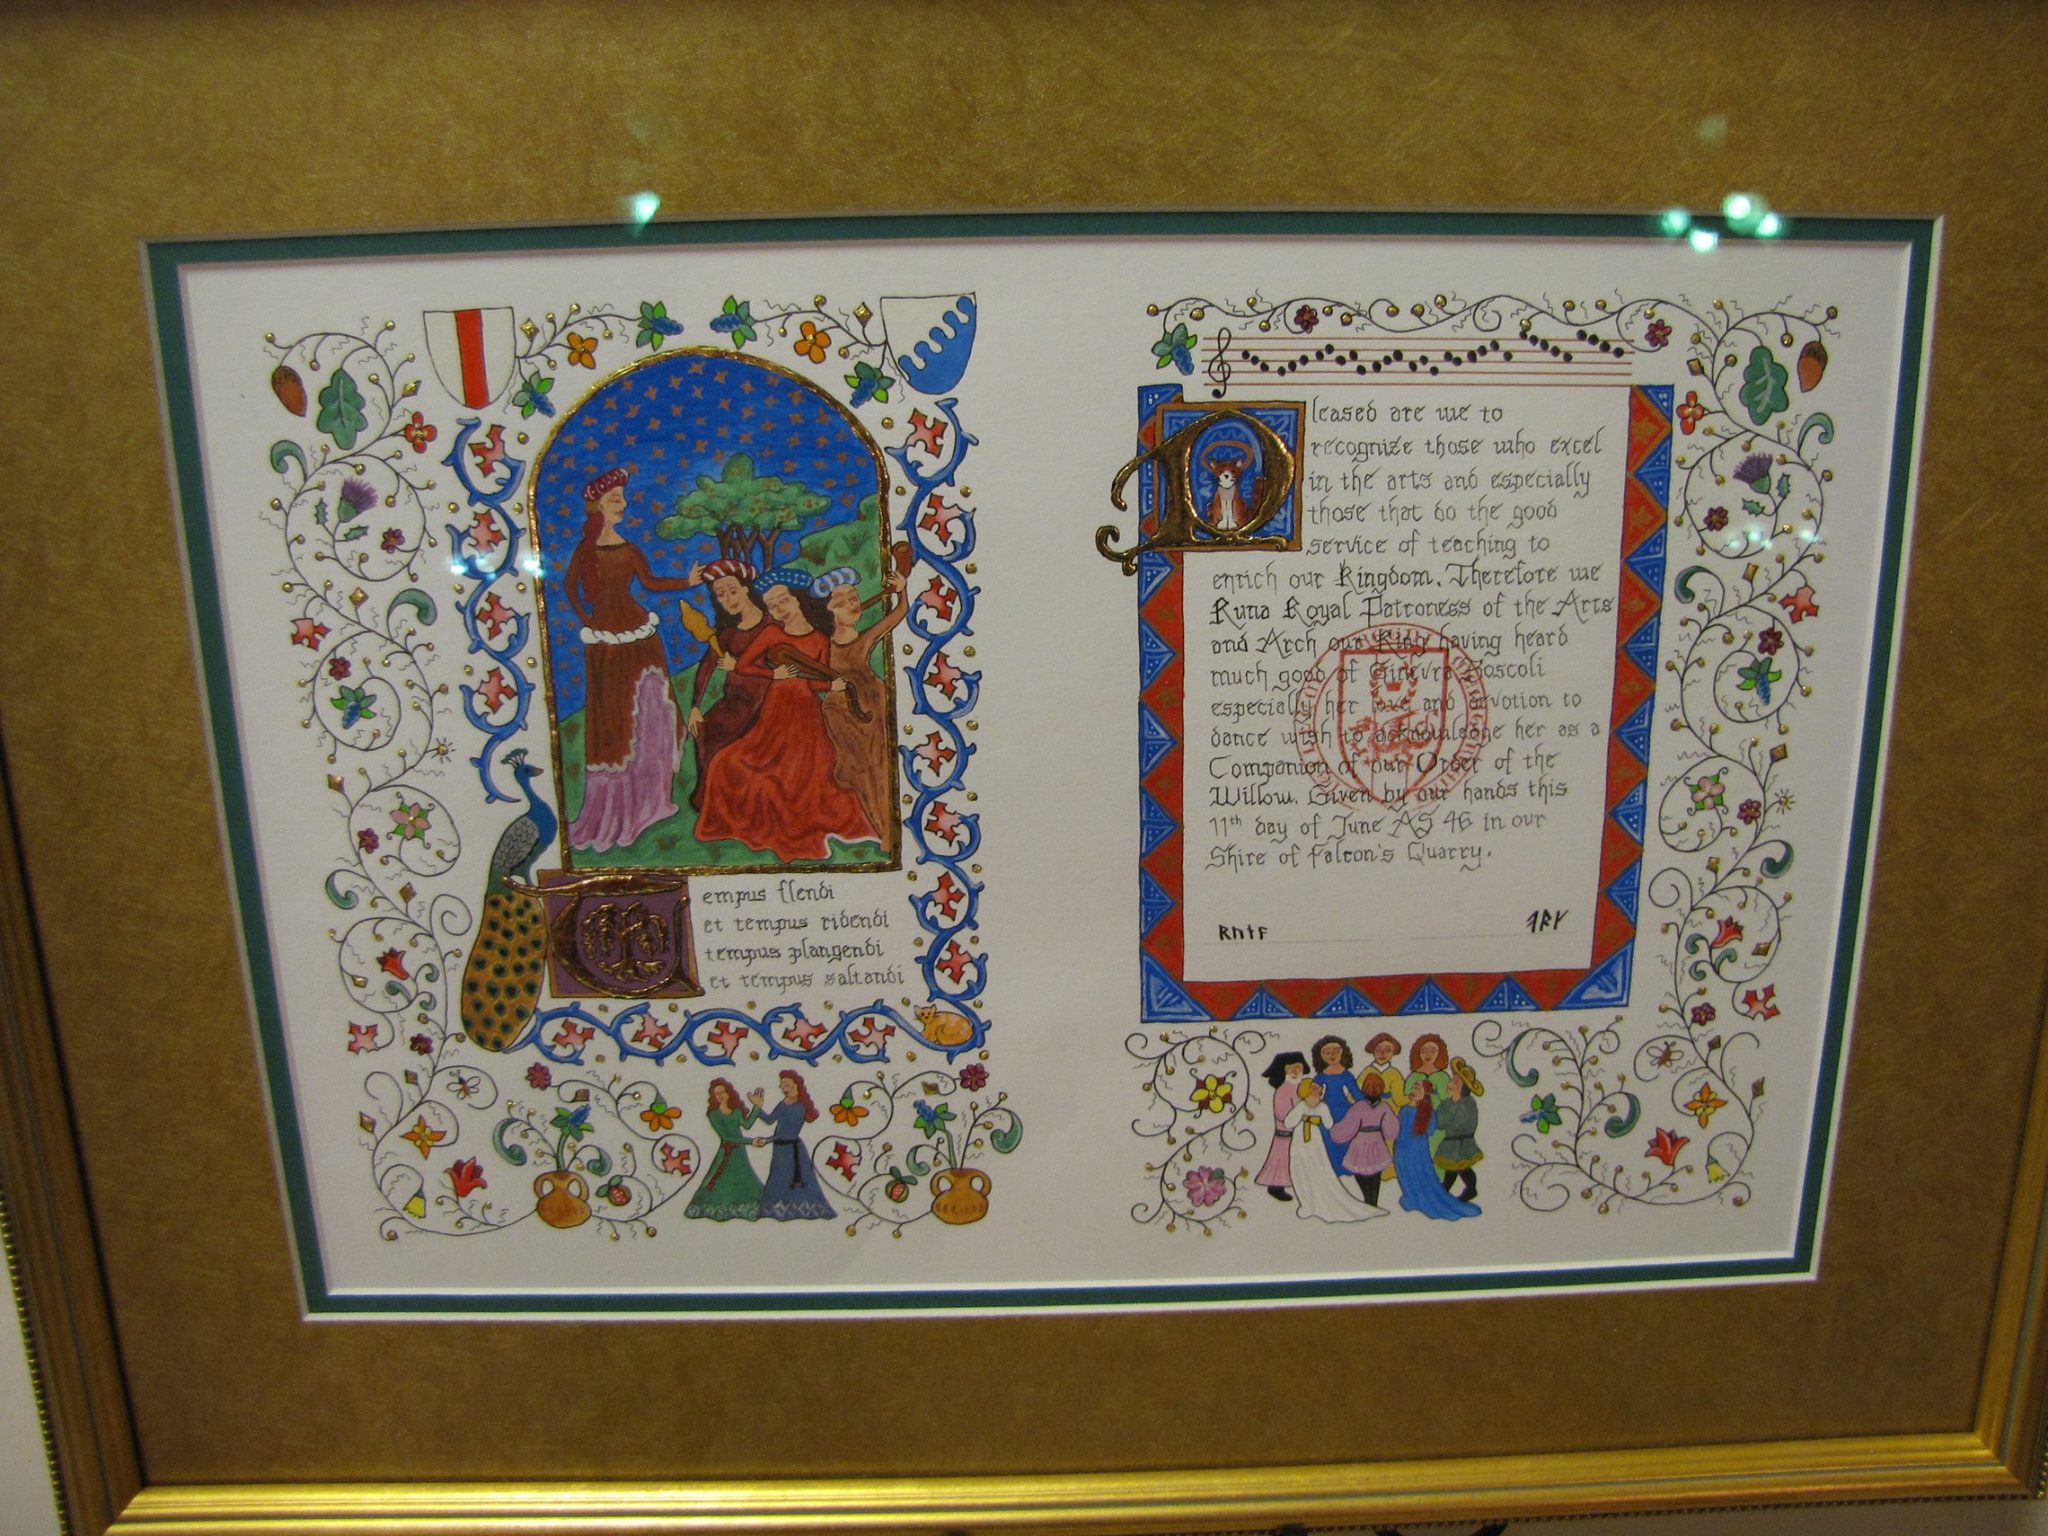 Tempus flendi
et tempus ridendi
tempus plangendi
et tempus saltandi
Pleased are we to
recognize those who excel
in the arts and especially
those that do the good
service of teaching to
enrich our Kingdom. Therefore we
Runa Royal Patroness of the Arts
and Arch our King having heard
much good of Ginevra Boscoli
especially her love and devotion to
dance wish to acknowledge her as a
Companion of our Order of the
Willow. Given by our hands this
11th day of June AS 46 in our
Shire of Falcon's Quarry.